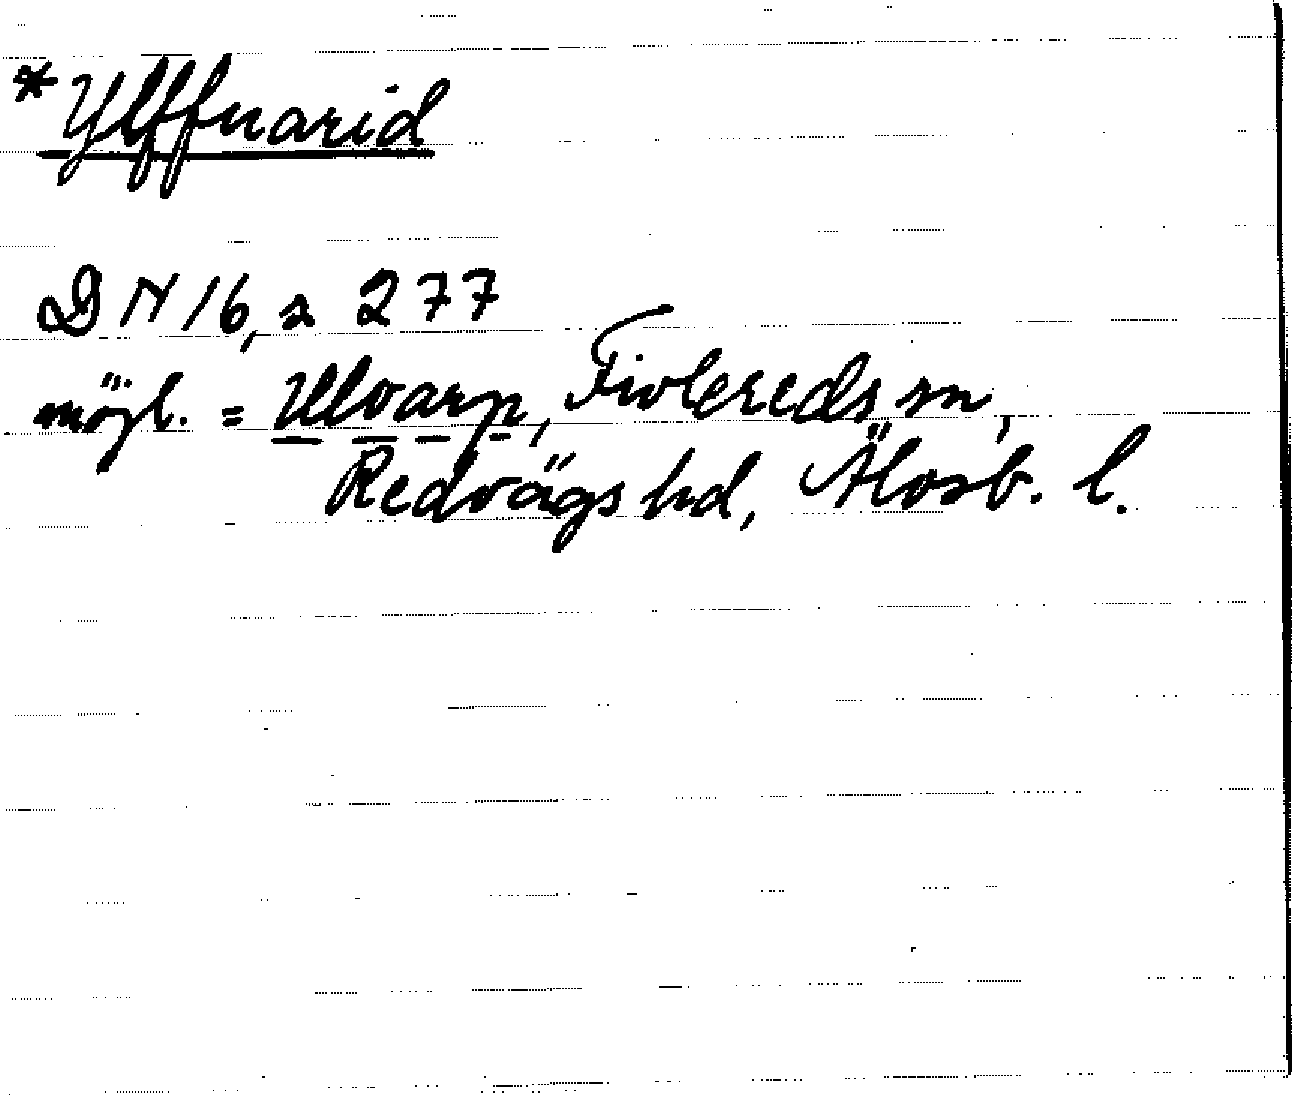 *Ylffuarid
DN 16, s 277
möjl. = Ulvarp, Fivlereds sn,
Redvägs hd, Älvsb. l.